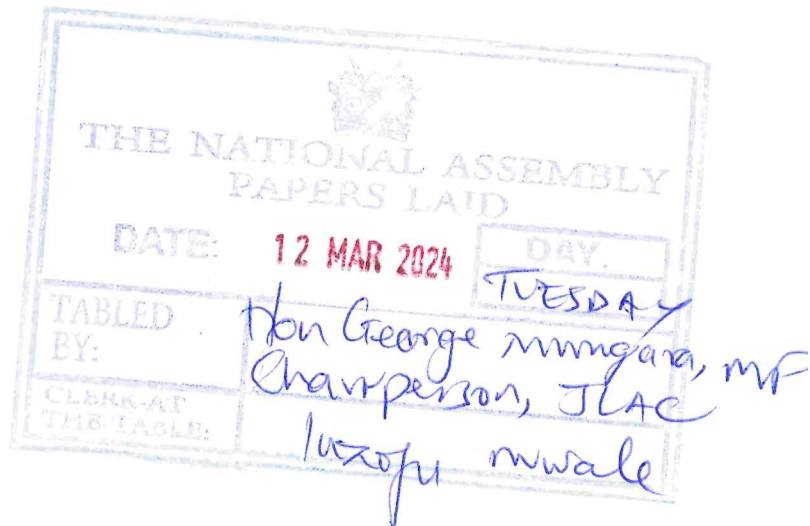 THE NATIONAL ASSEMBLY
PAPERS LAID
DATE: 12 MAR 2024 DAY.
TUESDAY
TABLED BY: Hon George Murugara, MP
Chairperson, JLAC
CLERK-AT THE TABLE: Inzofu Mwale